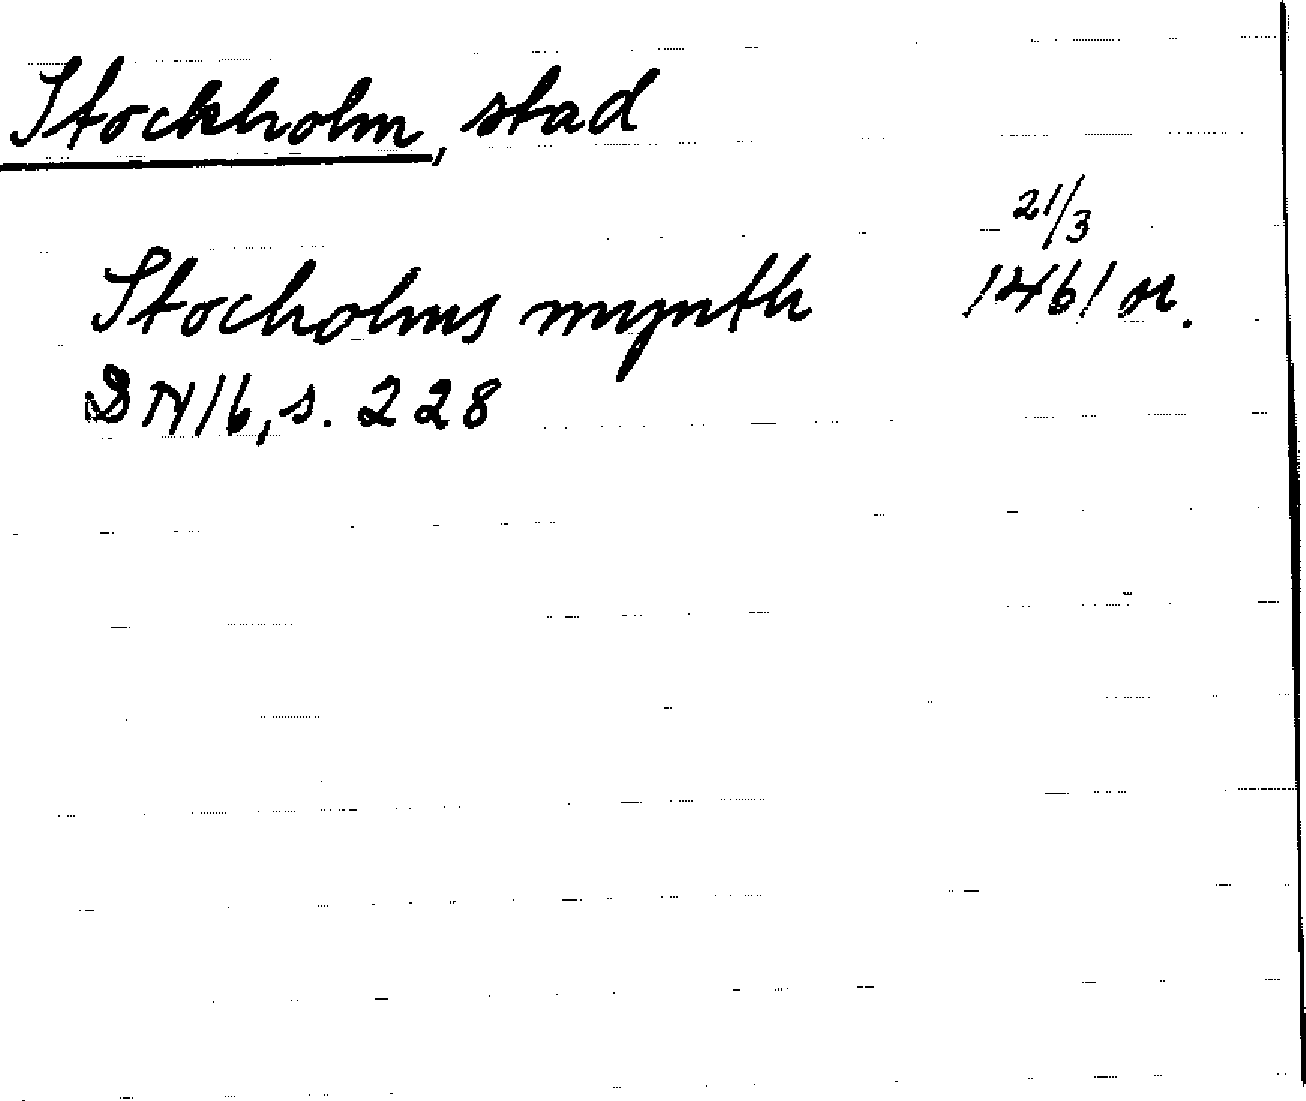 Stockholm, stad
21/3
Stocholms mynth 1461 or.
DN 16, s. 228